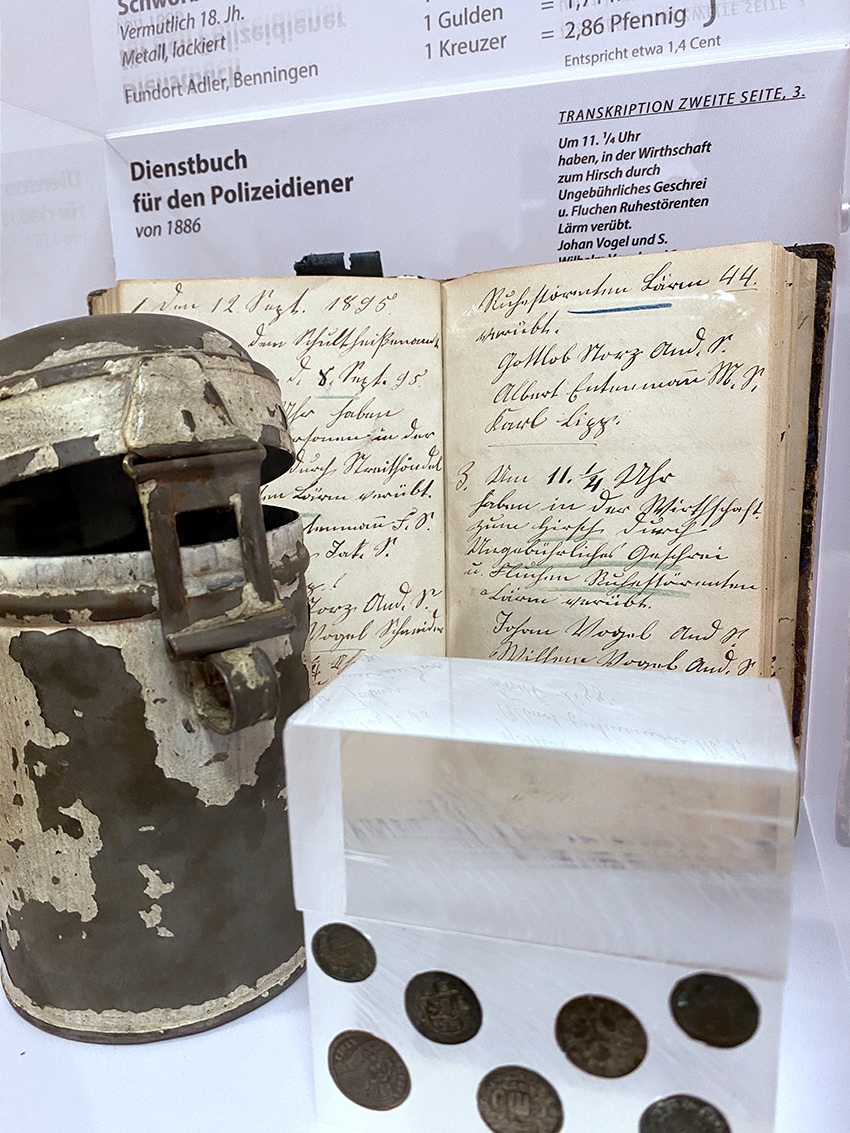 Vermutlich 18. Jh.
Metall, lackiert
Fundort Adler, Benningen
1 Gulden
1 Kreuzer = 2,86 Pfennig
Entspricht etwa 1,4 Cent
Dienstbuch
für den Polizeidiener
von 1886
TRANSKRIPTION ZWEITE SEITE, 3.
Um 11. ¼ Uhr
haben, in der Wirthschaft
zum Hirsch durch
Ungebührliches Geschrei
u. Fluchen Ruhestörenten
Lärm verübt.
Johan Vogel und S.
den 12. Sept. 1895.
dem Schultheißenamt
d. 8. Sept. 95
Uhr haben
in der
durch Streithändel
Lärm verübt.
Jak. S.
And. S.
Vogel Schneider
Ruhestörenten Lärm 44.
verübt.
Gottlob Storz And. S.
Albert Entenmann M. S.
Karl Lipp.
3. Um 11. ¼ Uhr
haben in der Wirthschaft
zum Hirsch durch
Ungebührliches Geschrei
u. Fluchen Ruhestörenten
Lärm verübt.
Johan Vogel And S.
Vogel And. S.